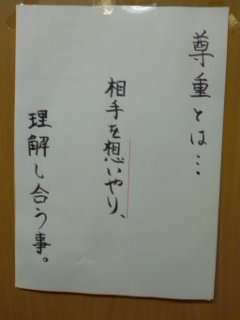 尊重とは…
相手を想いやり、
理解し合う事。